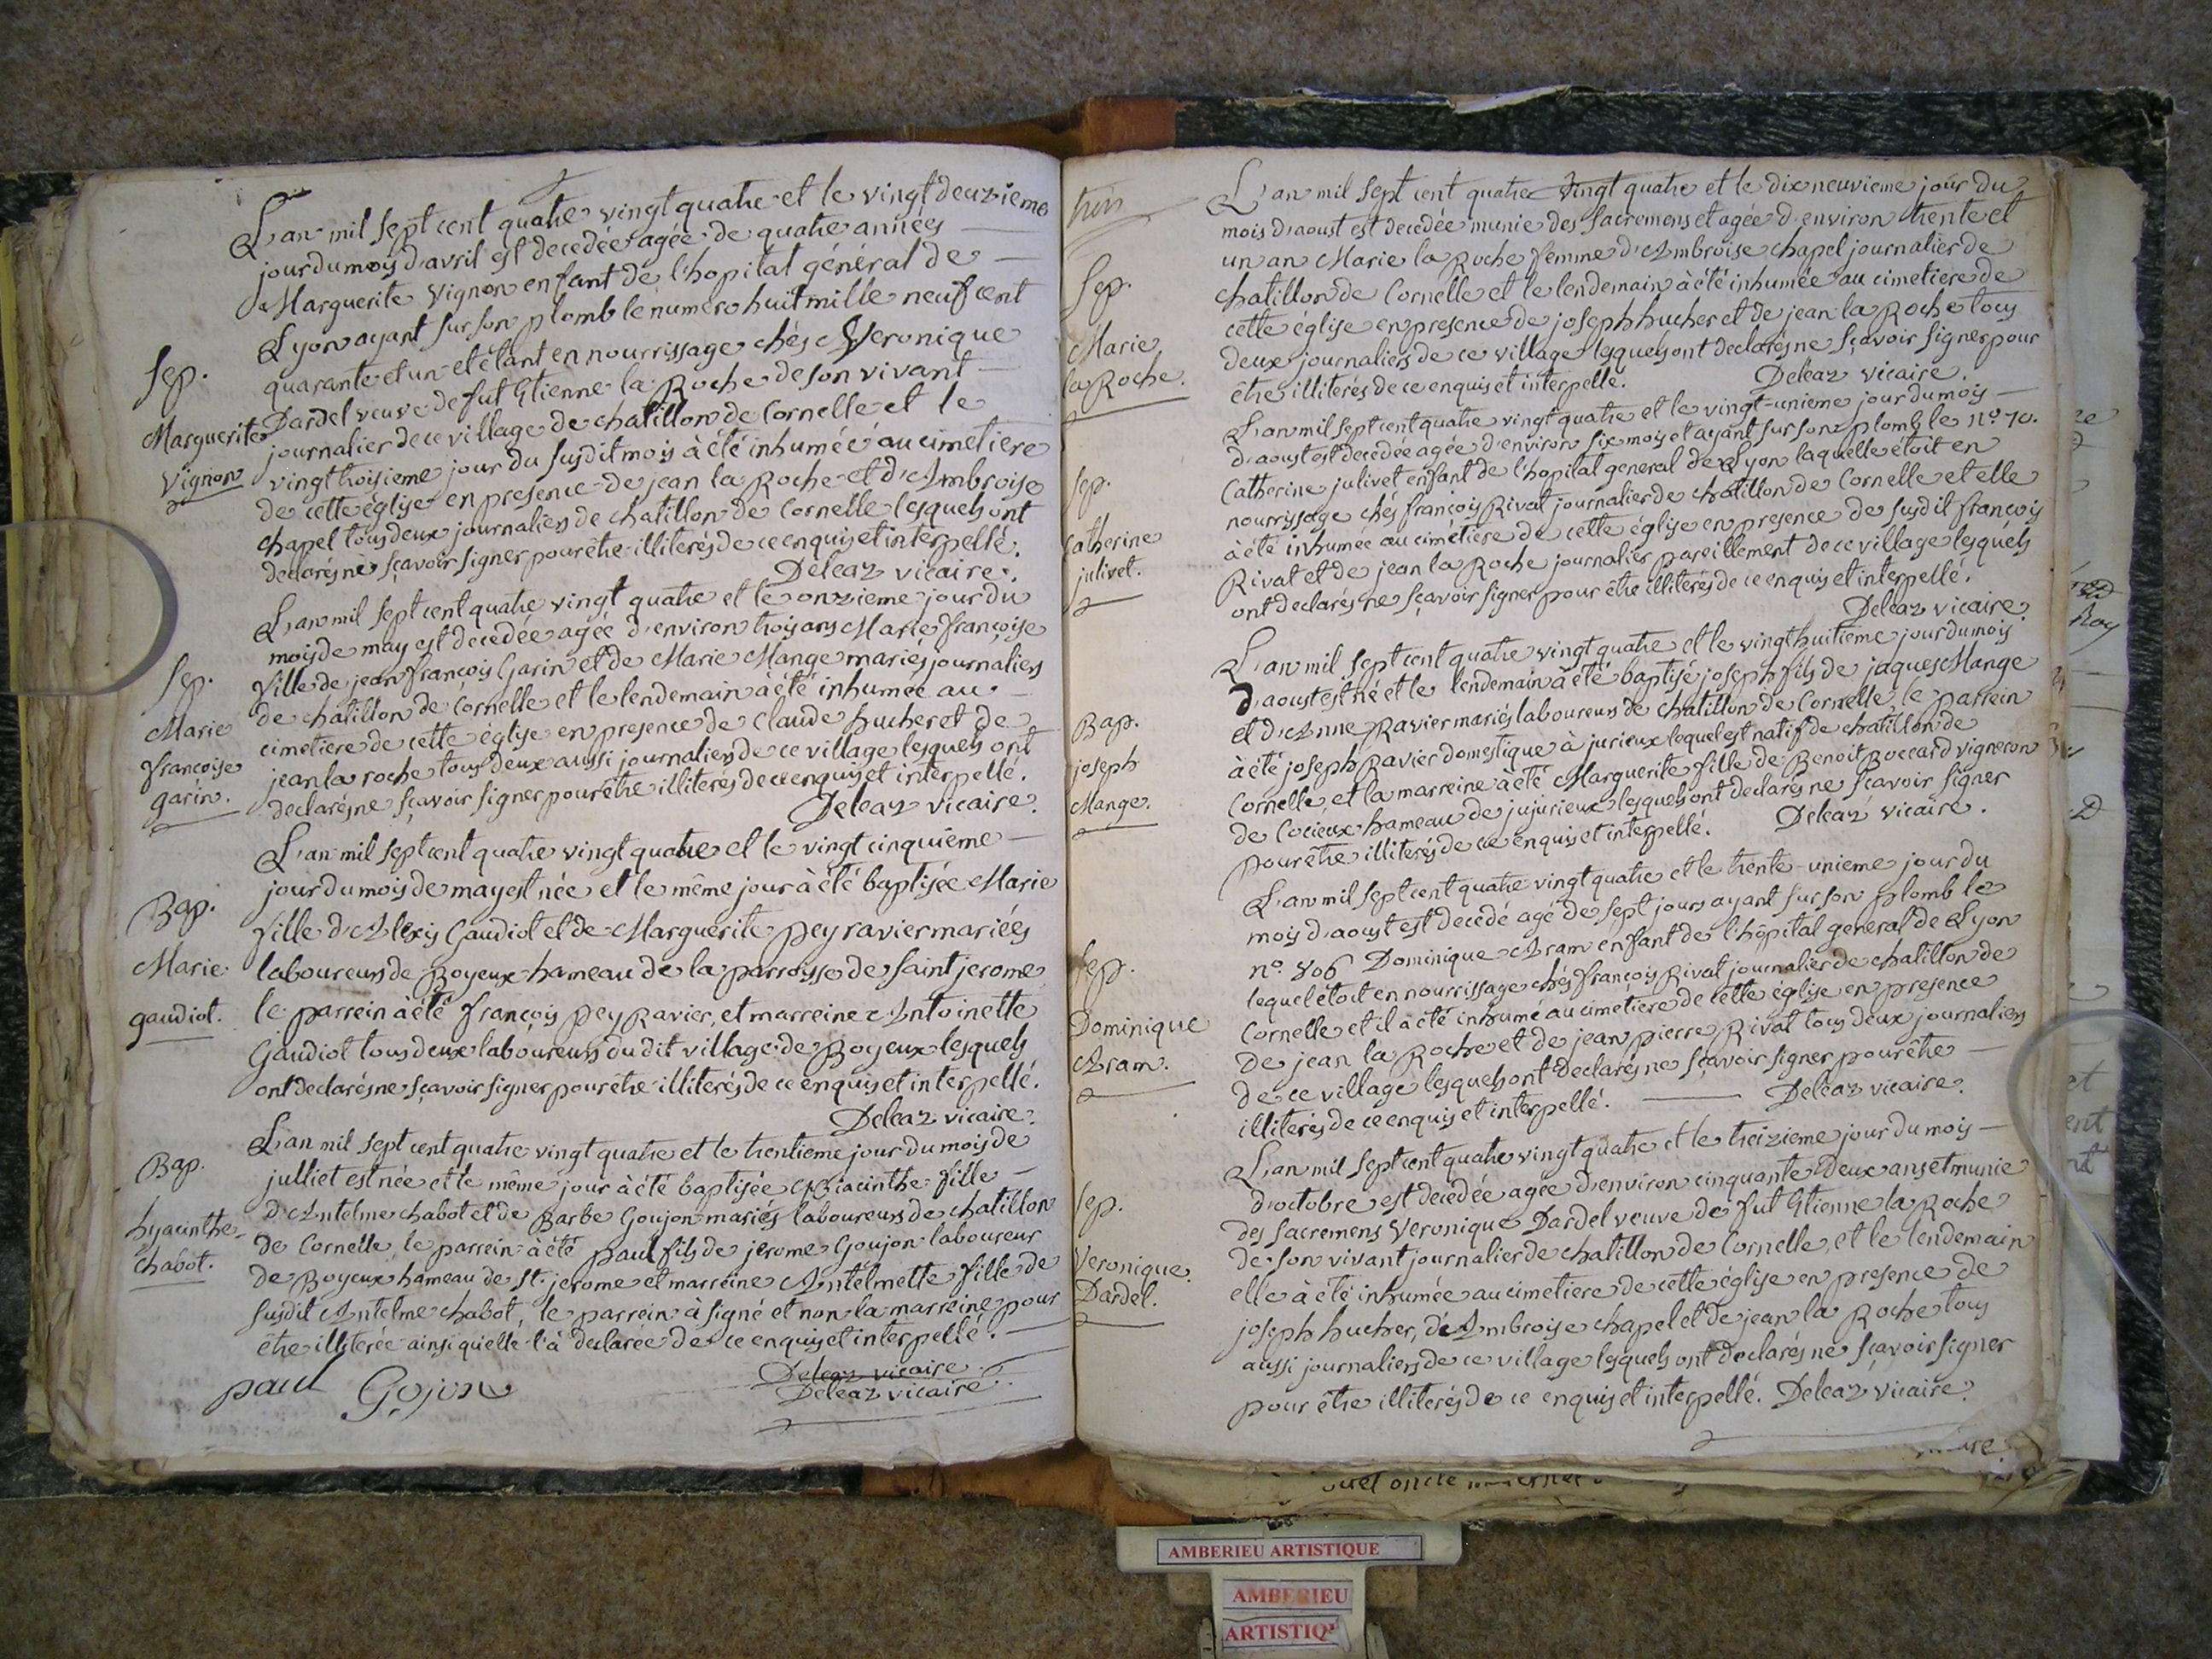 L'an mil sept cent quatre vingt quatre et le vingt deuzieme
jour du mois d'avril est decedée agée de quatre années
Marguerite Vignon enfant de l'hopital général de
Lyon ayant sur son plomb le numero huit mille neuf cent
quarante et un et étant en nourrissage chés Veronique
Sep.
Dardel veuve de fut Etienne la Roche de son vivant
Marguerite
journalier de ce village de chatillon de Cornelle et le
Vignon
vingt troisieme jour du susdit mois à été inhumée au cimetiere
de cette église en presence de jean la Roche et d'Ambroise
chapel tous deux journaliers de chatillon de Cornelle lesquels ont
declarés ne sçavoir signer pour être illiterés de ce enquis et interpellé.
Deleaz vicaire.
L'an mil sept cent quatre vingt quatre et le onzieme jour du
mois de may est decedée agée d'environ trois ans Marie françoise
Sep.
fille de jean françois Garin et de Marie Mange mariés journaliers
Marie
de chatillon de Cornelle et le lendemain à été inhumée au
françoise
cimetiere de cette église en presence de Claude hucher et de
garin.
jean la roche tous deux aussi journaliers de ce village lesquels ont
declarés ne sçavoir signer pour être illiterés de ce enquis et interpellé.
Deleaz vicaire.
L'an mil sept cent quatre vingt quatre et le vingt cinquième
jour du mois de may est née et le même jour à été baptisée Marie
Bap.
fille d'Alexis Gaudiot et de Marguerite Peyravier mariées
Marie
laboureurs de Boyeux hameau de la parroisse de saint jerome
gaudiot.
le parrein à été françois Pey Ravier, et marreine Antoinette
Gaudiot tous deux laboureurs du dit village de Boyeux lesquels
ont declarés ne sçavoir signer pour être illiterés de ce enquis et interpellé.
Deleaz vicaire.
L'an mil sept cent quatre vingt quatre et le trentieme jour du mois de
Bap.
julliet est née et le même jour à été baptisée hiacinthe fille
hyacinthe
d'Antelme chabot et de Barbe Goujon mariés laboureurs de chatillon
chabot.
de Cornelle, le parrein à été paul fils de jerome Goujon laboureur
de Boyeux hameau de St. jerome et marreine Antelmette fille de
susdit Antelme chabot, le parrein à signé et non la marreine pour
être illiterée ainsi quielle l'à declarée de ce enquis et interpellé.
Deleaz vicaire
paul Gojon
Deleaz vicaire.
trois
L'an mil sept cent quatre vingt quatre et le dix neuvieme jour du
mois d'aoust est decedée munie des sacremens et agée d'environ trente et
un an Marie la Roche femme d'Ambroise chapel journalier de
Sep.
chatillon de Cornelle et le lendemain à été inhumée au cimetiere de
Marie
cette église en presence de joseph hucher et de jean la Roche tous
la Roche.
deux journaliers de ce village lesquels ont declarés ne sçavoir signer pour
être illiterés de ce enquis et interpellé. Deleaz vicaire.
L'an mil sept cent quatre vingt quatre et le vingt-unieme jour du mois
d'aoust est decedée agée d'environ six mois et ayant sur son plomb le no. 70.
Sep.
Catherine julivet enfant de l'hopital general de Lyon laquelle étoit en
Catherine
nourrissage chés françois Rivat journalier de chatillon de Cornelle et elle
julivet.
à été inhumée au cimétiere de cette église en presence de susdit françois
Rivat et de jean la Roche journalier pareillement de ce village lesquels
ont declarés ne sçavoir signer pour être illiterés de ce enquis et interpellé.
Deleaz vicaire.
L'an mil sept cent quatre vingt quatre et le vingt huitième jour du mois
d'aoust est né et le lendemain à été baptisé joseph fils de jaques Mange
Bap.
et d'Anne Ravier mariés laboureurs de chatillon de Cornelle, le parrein
joseph
à été joseph Ravier domestique à jurieux lequel est natif de chatillon de
Mange.
Cornelle, et la marreine à été Marguerite fille de Benoit Boccard vigneron
de Cocieux hameau de jujurieux lesquels ont declarés ne sçavoir signer
pour être illiterés de ce enquis et interpellé. Deleaz vicaire.
L'an mil sept cent quatre vingt quatre et le trente-unieme jour du
mois d'aoust est decedé agé de sept jours ayant sur son plomb le
Sep.
no. 806 Dominique Aram enfant de l'hôpital general de Lyon
Dominique
lequel étoit en nourrissage chés françois Rivat journalier de chatillon de
Aram.
Cornelle et il à été inhumé au cimetiere de cette église en presence
de jean la Roche et de jean pierre Rivat tous deux journaliers
de ce village lesquels ont declarés ne sçavoir signer pour être
illiterés de ce enquis et interpellé. Deleaz vicaire.
L'an mil sept cent quatre vingt quatre et le treizieme jour du mois
Sep.
d'octobre est decedée agée d'environ cinquante deux ans et munie
Veronique
des sacremens Veronique Dardel veuve de fut Etienne la Roche
Dardel.
de son vivant journalier de chatillon de Cornelle, et le lendemain
elle à été inhumée au cimetiere de cette église en presence de
joseph hucher, d'Ambroise chapel et de jean la Roche tous
aussi journaliers de ce village lesquels ont declarés ne sçavoir signer
pour être illiterés de ce enquis et interpellé. Deleaz vicaire.
AMBERIEU ARTISTIQUE
AMBERIEU
ARTISTIQ